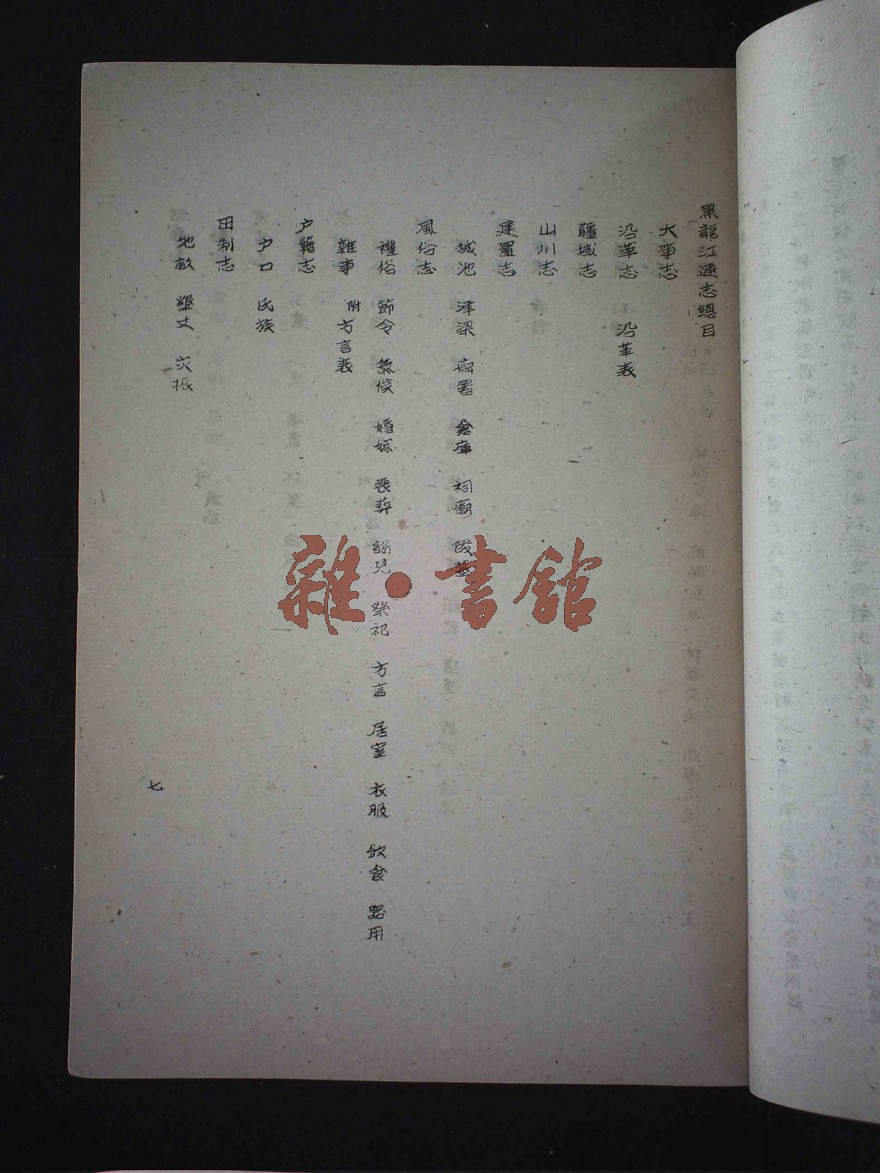 黑龍江通志總目
大事志
沿革志 沿革表
疆域志
山川志
建置志
城池 津梁 廨署 倉庫 祠廟 陵墓
風俗志
禮俗 節令 氣候 婚嫁 喪葬 誕兒 祭祀 方言 居室 衣服 飲食 器用
雜事 附方言表
户籍志
户口 氏族
田制志
地畝 墾丈 災振
七
雜·書館